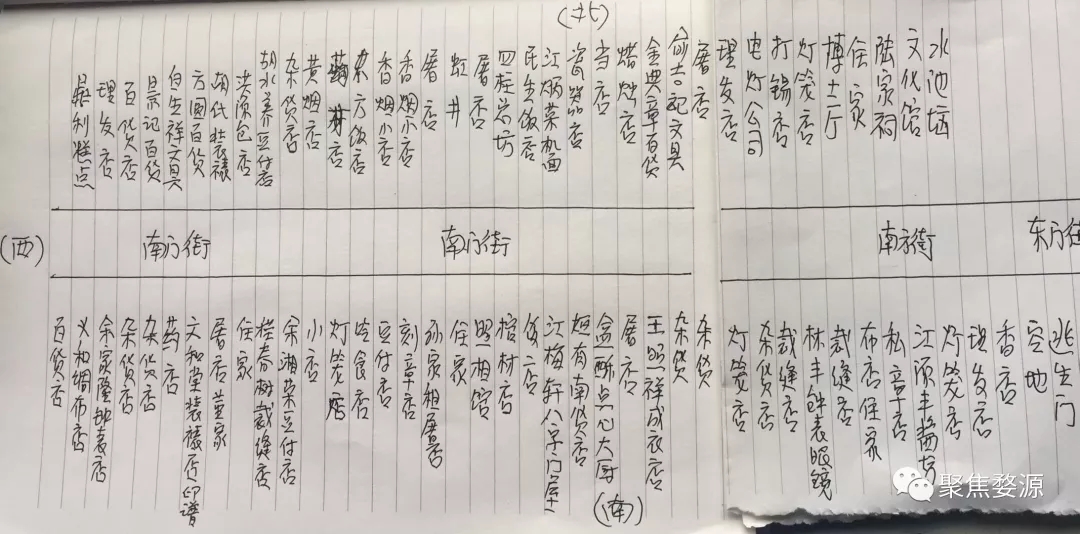 (北)
鼎利糕点
理发店
百货店
景记百货
自生祥文具
方圆百货
胡氏装裱
洪源包店
胡水养豆付店
杂货店
黄烟店
东方饭店
香烟小店
香烟小店
屠店
虹井
屠店
四柱岩坊
民生饭店
江炳荣机面
瓷器店
当店
焙烛店
金典章百货
俞吉记文具
屠店
理发店
电灯公司
打锡店
灯笼店
博士厅
住家
陆家祠
文化馆
水池塘
(西)
南门街
南门街
南门街
东门街
百货店
义和绸布店
余家隆钟表店
杂货店
杂货店
药店
文和堂装裱店印谱
屠店董家
住家
桂春树裁缝店
余湘荣豆付店
小店
灯笼店
吟食店
豆付店
刻章店
孙家相屠店
住家
照相馆
棺材店
饭店
江梅轩公学门屋
短有南货店
盒酥点心大厨
屠店
王照祥成衣店
杂货
杂货
灯笼店
杂货店
裁缝店
林丰钟表眼镜
裁缝店
布店住家
私章店
江源丰酱坊
灯笼店
理发店
香店
空地
逃生门
(南)
聚焦婺源